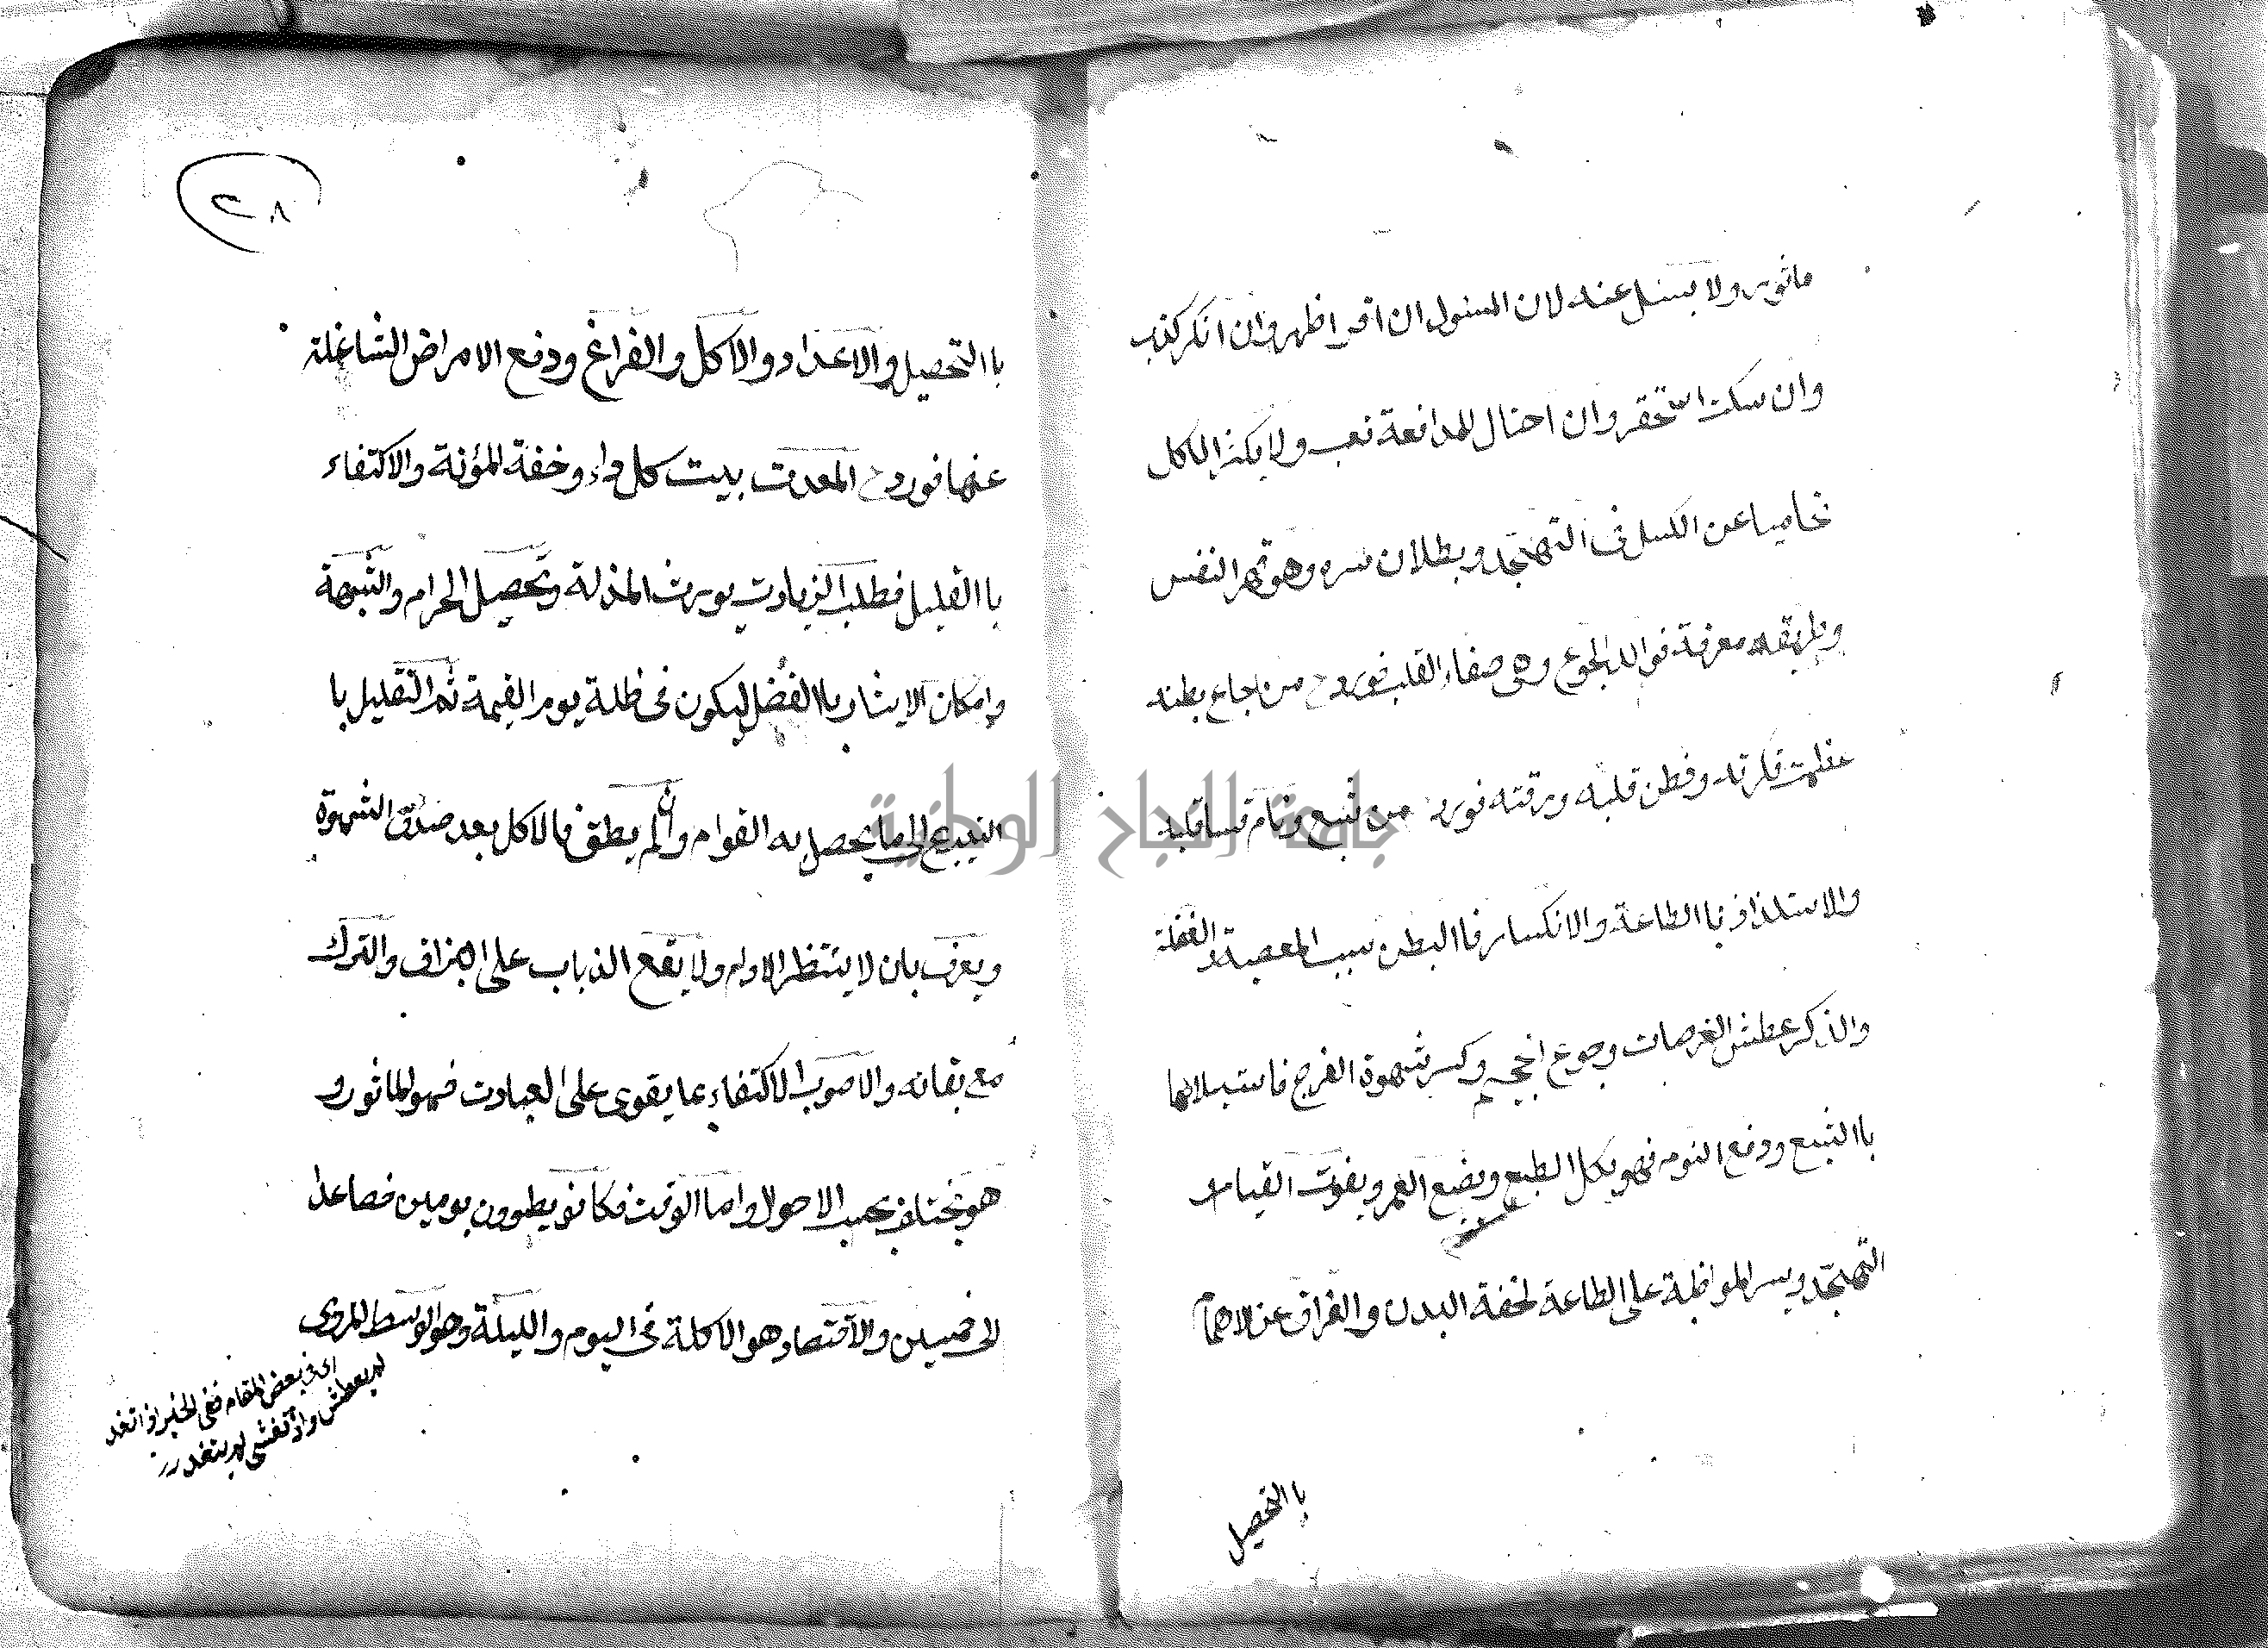 ماثور ولا يسئل عنه لان المسئول ان اقر اظهر وان انكر كذب
وان سكت استحقر وان احتال للمدافعة تعب ولا يكثر الاكل
تحاميا عن الكسل فى التهجد وبطلان سره وهو قهر النفس
وطريقه معرفة فوائد الجوع وهى صفاء القلب فورد ح من اجاع بطنه
عظمت فكرته وفطن قلبه ورقته فورد من شبع ونام قسا قلبه
والاستلذاذ باالطاعة والانكسار فاالبطن سبب المعصية والغفلة
والذكر عطش العرصات وجوع وكسر شهوة الفرج فاستيلائها
باالشبع ودفع النوم فهو يكل الطبع ويضيع العمر ويفوت القيام
التهجد ويسر المواظبة على الطاعة لخفة البدن والفراق عن الاهتمام
باالتحصيل
٢٨
باالتحصيل والاعداد والاكل والفراغ ودفع الامراض الشاغلة
عنها فورد ح المعدت بيت كل داء وخفة المؤنة والاكتفاء
باالقليل فطلب الزيادت يورث المذلة وتحصيل الحرام والشبهة
وامكان الايثار باالفضل ليكون فى ظلة يوم القيمة ثم التقليل با
التدريج الى ما يحصل به القوام وان لم يطق فالاكل بعد صدق الشهوة
ويعرف بان لا ينتظر الادام ولا يقع الذباب على البزاق والترك
مع بقائه والاصوب الاكتفاء بما يقوى على العبادت فهو الماثور و
هو يختلف بحسب الاصول واما الوقت فكانو يطوون يومين فصاعدا
الى خمسين والاقتصاد هو الاكلة فى اليوم والليلة وهو الوسط المروى
اى فى بعض المقام ففى الخبر اذا تغد
لم يعطش واذا تعشى لم يتغد
جامعة النجاح الوطنية